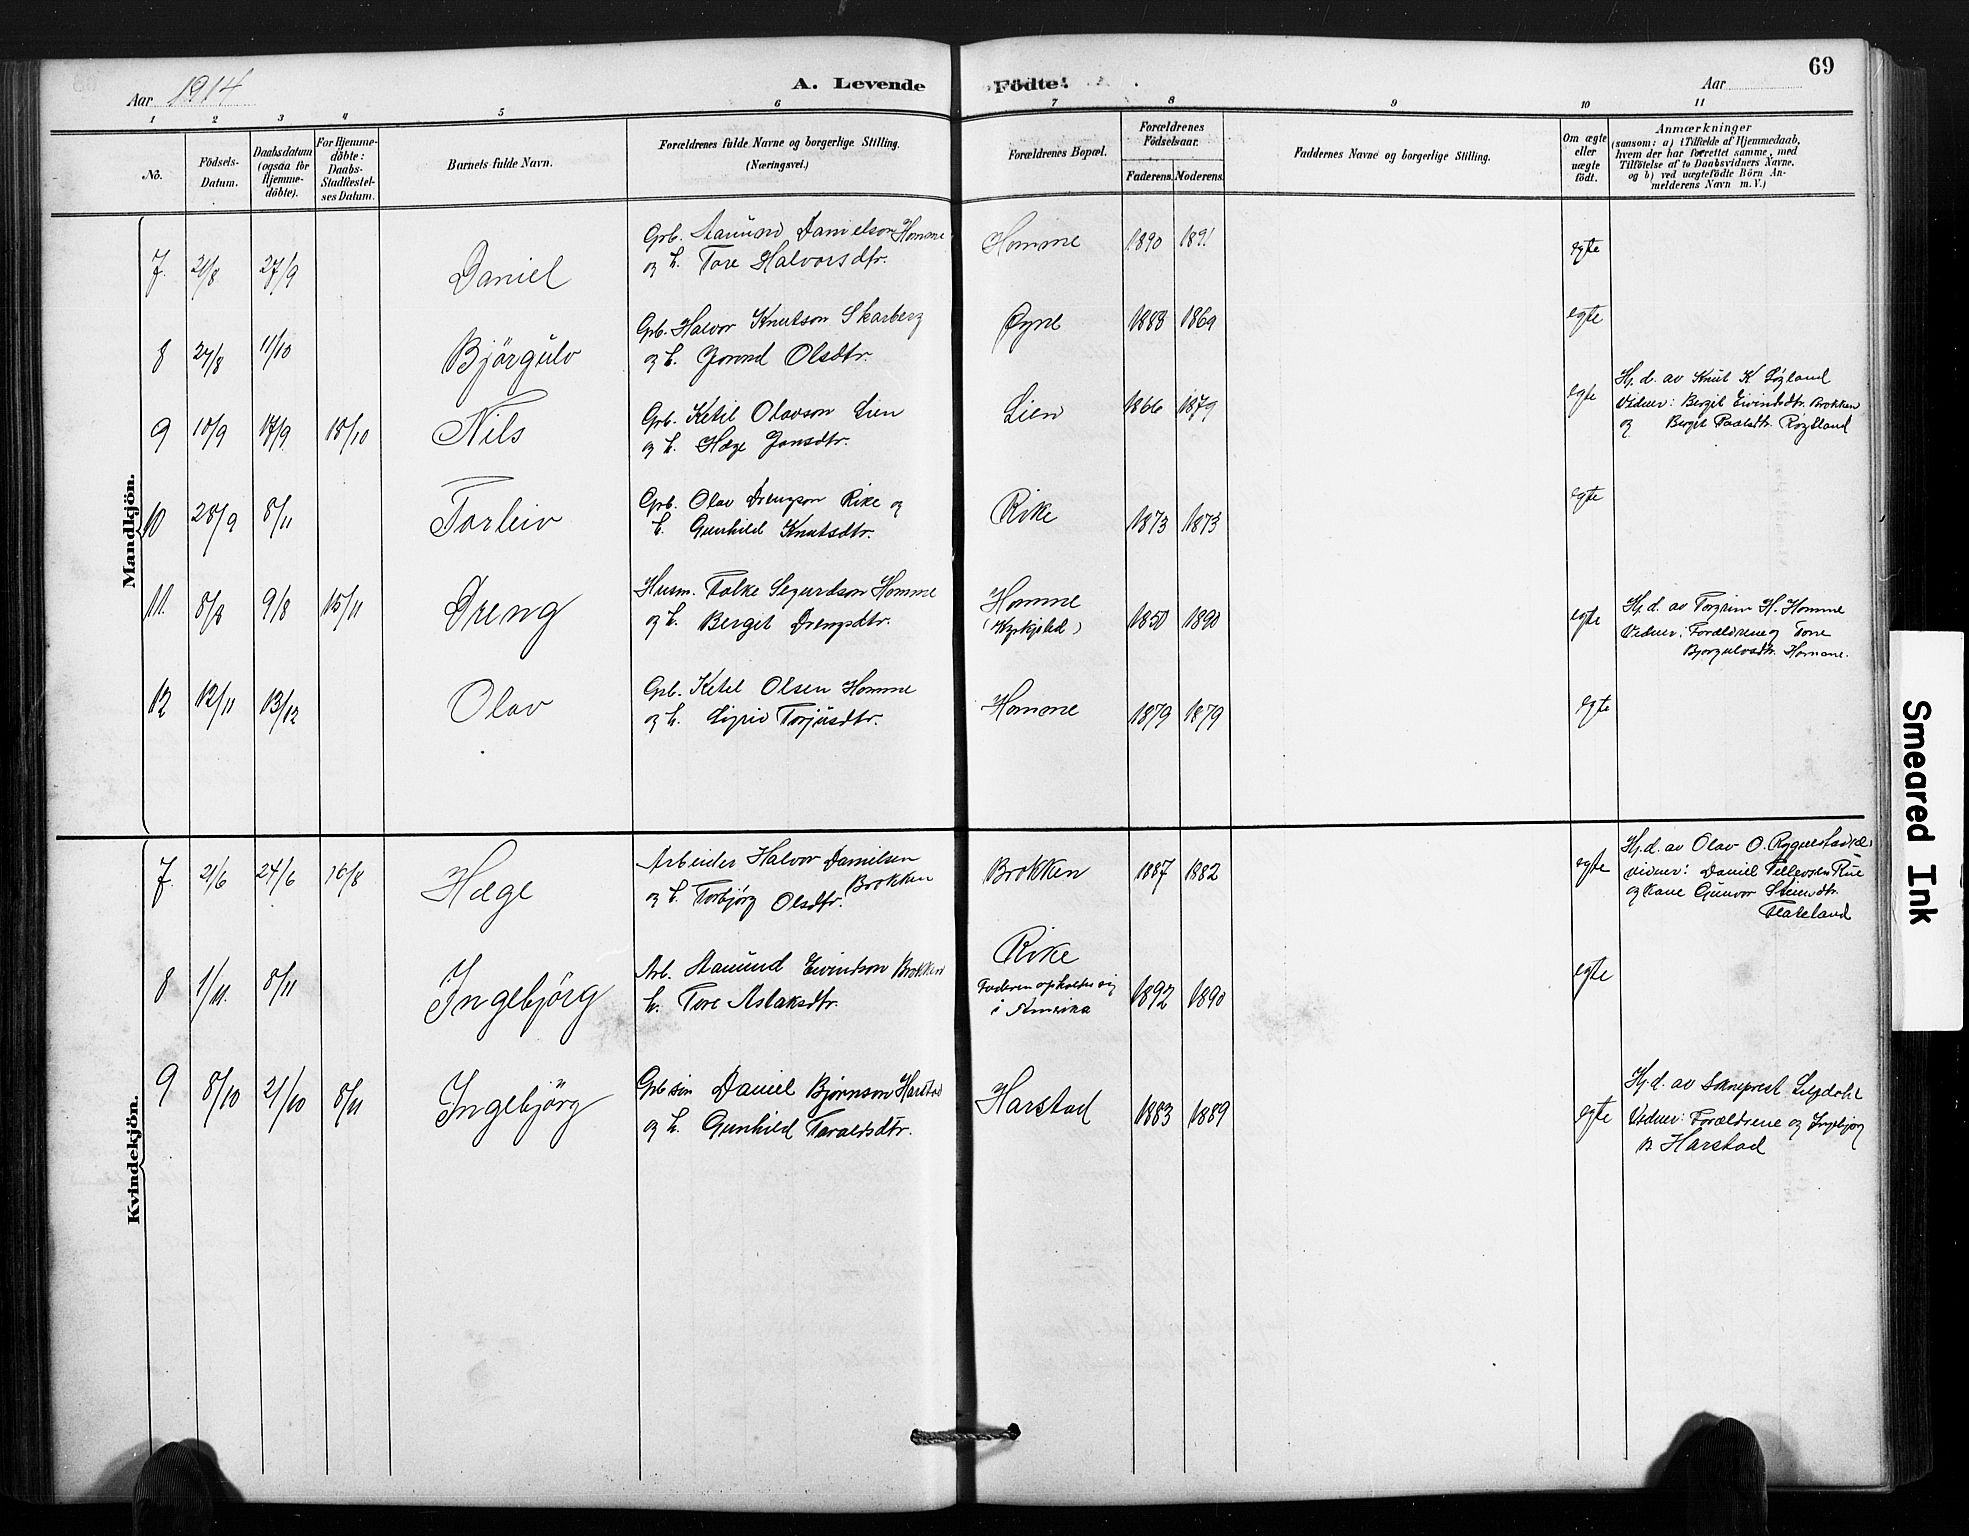 69
Aar 1914
A. Levende Födte.
Aar
1 2 3 4 5 6 7 8 9 10 11
No.
Födsels-
Datum.
Daabsdatum
(ogsaa for
Hjemme-
döbte).
For Hjemme-
döbte:
Daabs-
Stadfæstel-
ses Datum.
Barnets fulde Navn.
Forældrenes fulde Navne og borgerlige Stilling.
(Næringsvei.)
Forældrenes Bopæl.
Forældrenes
Födselsaar.
Faderens. Moderens.
Faddernes Navne og borgerlige Stilling.
Om ægte
eller
uægte
födt.
Anmærkninger
(saasom: a) i Tilfælde af Hjemmedaab,
hvem der har forrettet samme, med
Tilföielse af to Daabsvidners Navne,
og b) ved uægtefödte Börn An-
melderens Navn m.V.)
Mandkjön.
7. 27/9 Daniel
Grb. Aamund Danielson Homme
og h. Tore Halvorsdtr.
Homme 1890 1891 egte
8 27/8 11/10 Bjørgulv
Grb. Halvor Knutson Skarberg
og h. Gorond Olsdtr.
Øyne 1888 1869 egte
9 10/9 17/9 18/10 Nils
Grb. Ketil Olavson Lien
og h. Hæge Jonsdtr.
Lien 1866 1879 egte
Hj. d. av Knut K
Vidner: Bergit Eivindsdtr. Brokken
og Bergit
10 28/9 8/11 Torleiv
Grb. Olav Drengson Rike og
h. Gunhild Knutsdtr.
Rike 1873 1873 egte
11. 8/8 9/8 15/11 Dreng
Husm. Folke Segurdson Homme
og h. Bergit Drengsdtr.
Homme
1850 1890 egte
Hj. d. av Torgrim H. Homme
Vidner: Forældrene og Tone
Bjorgulvsdtr. Homme.
12 12/11 13/12 Olav
Grb. Ketel Olsen Homme
og h. Sigrid Torjusdtr.
Homme 1879 1879 egte
Kvindekjön.
7. 21/6 24/6 16/8 Hæge
Arbeider Halvor Danielsen
Brokken
og h. Torbjørg Olsdtr.
Brokken 1887 1882 egte
Hj. d. av Olav O.
vidner: Daniel Tellevsen Rue
og kone Gunvor
Flateland
8 1/11. 8/11 Ingebjørg
Arb. Aamund Eivindson Brokken
h. Tore Aslaksdtr.
Rike
Faderen opholder sig
i Amerika
1892 1890 egte
9 8/10 21/10 8/11 Ingebjørg
Grb søn Daniel Bjørnson Harstad
og h. Gunhild Taraldsdtr.
Harstad 1883 1889 egte
Hj. d. av Sokneprest
Vidner: Forældrene og Ingebjørg
B. Harstad
Smeared Ink